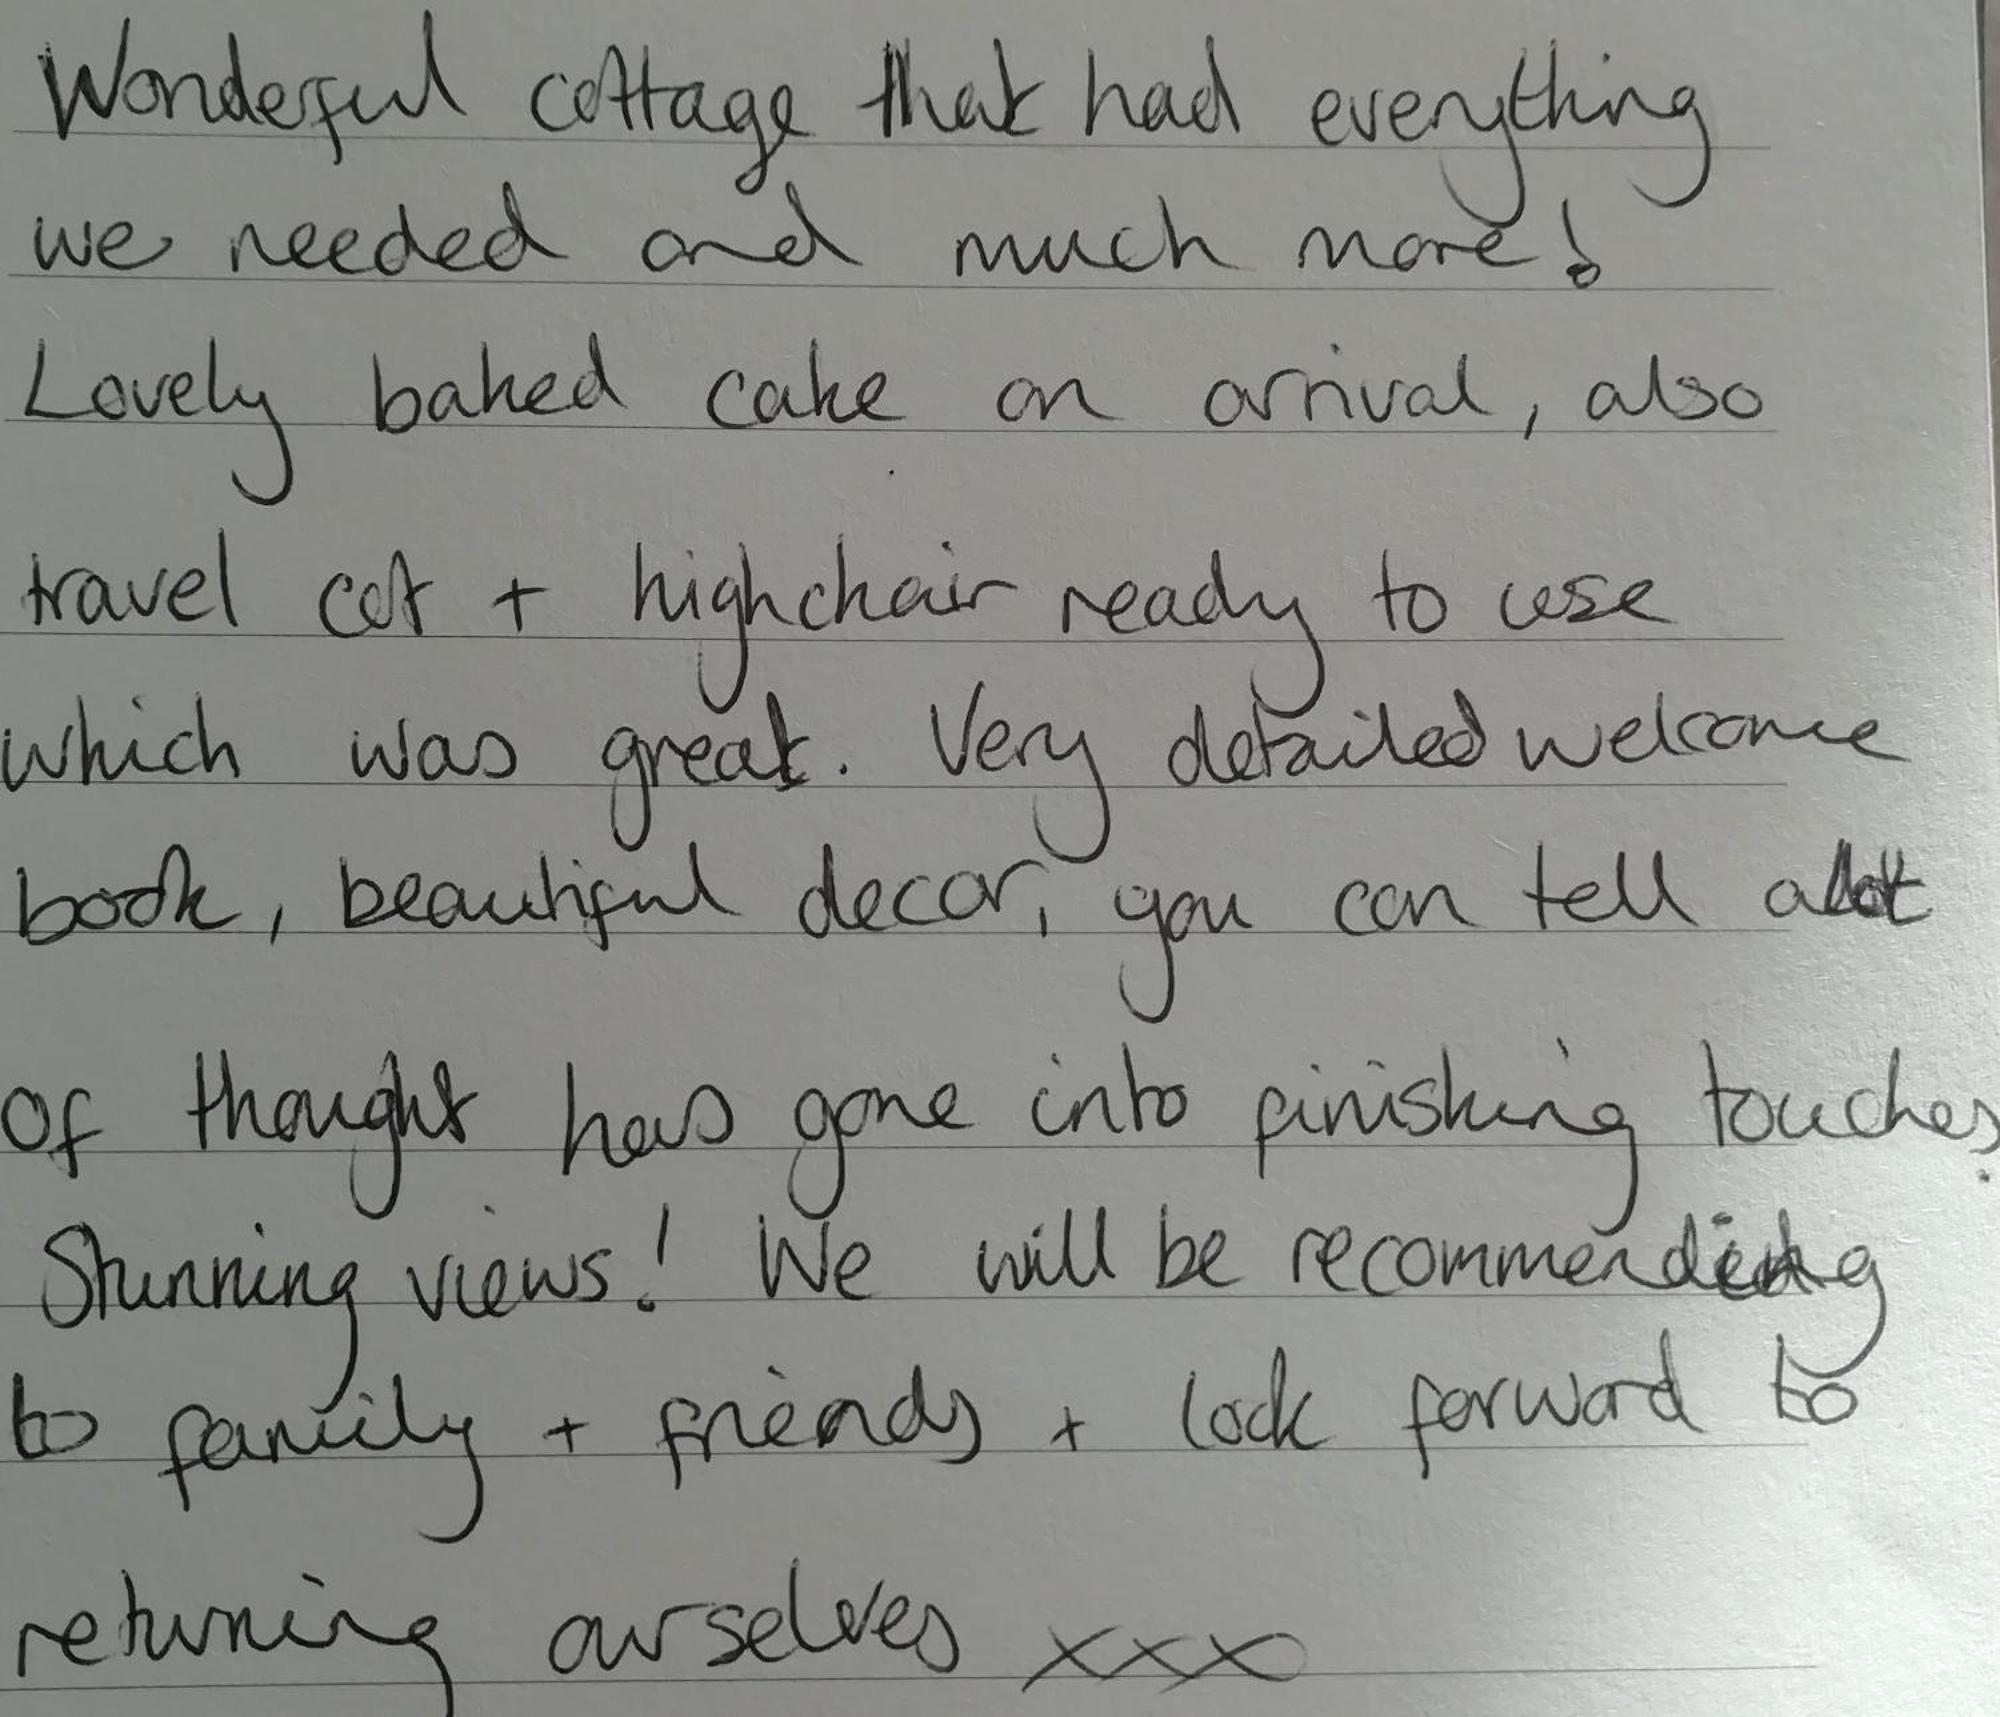 Wonderful cottage that had everything
we needed and much more!
Lovely baked cake on arrival, also
travel cot + highchair ready to use
which was great. Very detailed welcome
book, beautiful decor, you can tell alot
of thought has gone into finishing touches.
Stunning views! We will be recommending
to family + friends + look forward to
returning ourselves xxx